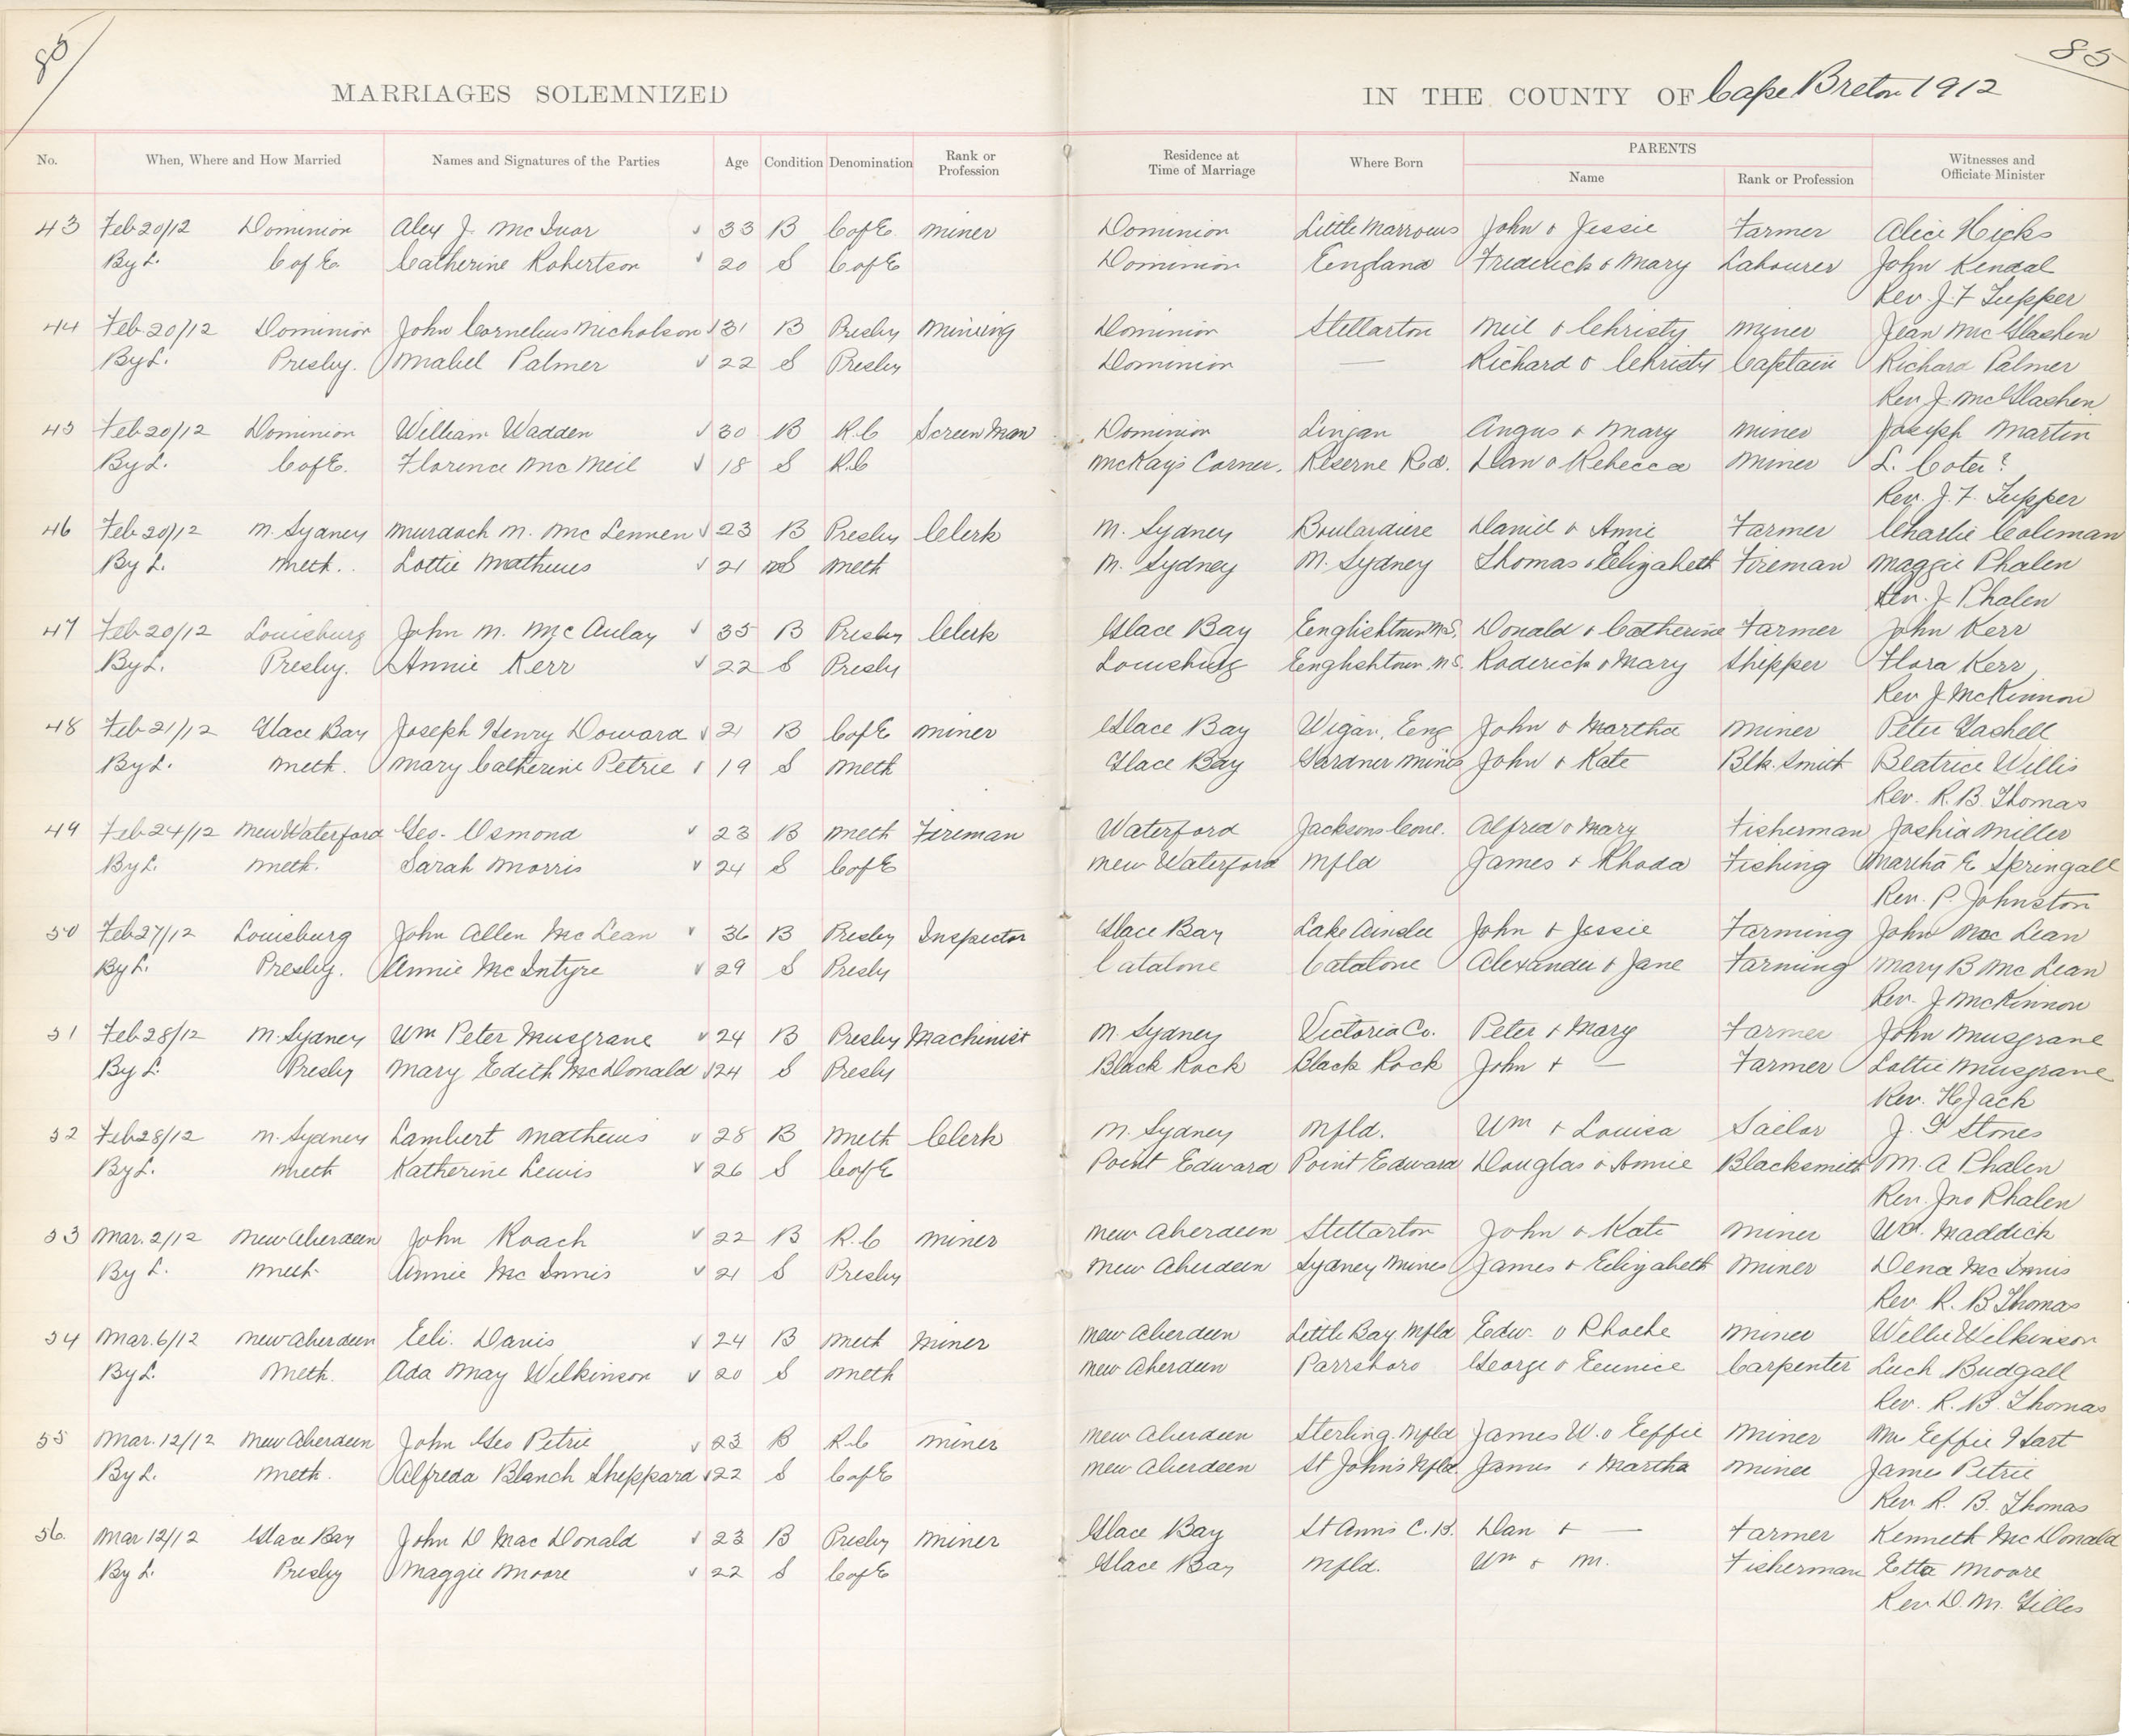 85
85
MARRIAGES SOLEMNIZED IN THE COUNTY OF Cape Breton 1912
No. When, Where and How Married Names and Signatures of the Parties Age Condition Denomination Rank or Profession Residence at Time of Marriage Where Born PARENTS Name Rank or Profession Witnesses and Officiate Minister
43 Feb 20/12 Dominion Alex J. McIvor 33 B C of E miner Dominion Little Narrows John & Jessie Farmer Alice Hicks
By L. C of E. Catherine Robertson 20 S C of E Dominion England Frederick & Mary Labourer John Kendal
Rev. J. F Tupper
44 Feb 20/12 Dominion John Cornelius Nicholson 31 B Presby mining Dominion Stellarton Neil & Christy miner Jean McGlashen
By L. Presby. Mabel Palmer 22 S Presby Dominion — Richard & Christy Captain Richard Palmer
Rev. J. McGlashen
45 Feb 20/12 Dominion William Wadden 30 B R.C Screen Man Dominion Lingan Angus & Mary miner Joseph Martin
By L. C of E. Florence McNeil 18 S R.C McKay's Corner. Reserve Rd. Dan & Rebecca miner L. Cote?
Rev. J. F. Tupper
46 Feb 20/12 N. Sydney Murdoch M. McLennen 23 B Presby Clerk N. Sydney Boulardiere Daniel & Annie Farmer Charlie Coleman
By L. Meth. Lottie Mathews 21 S Meth N. Sydney N. Sydney Thomas & Elizabeth Fireman Maggie Phalen
Rev. J. Phalen
47 Feb 20/12 Louisburg John M. McAulay 35 B Presby Clerk Glace Bay Englishtown N.S. Donald & Catherine Farmer John Kerr
By L. Presby. Annie Kerr 22 S Presby Louisburg Englishtown N.S. Roderick & Mary Shipper Flora Kerr
Rev J. McKinnon
48 Feb 21/12 Glace Bay Joseph Henry Doward 21 B C of E miner Glace Bay Wigan, Eng John & Martha miner Peter Gaskell
By L. Meth. Mary Catherine Petrie 19 S Meth Glace Bay Gardner Mines John & Kate Blk. Smith Beatrice Willis
Rev. R. B. Thomas
49 Feb 24/12 New Waterford Geo. Osmond 23 B Meth Fireman Waterford Jacksons Cove. Alfred & Mary Fisherman Joshia Miller
By L. Meth. Sarah Morris 24 S C of E New Waterford Nfld James & Rhoda Fishing Martha E Springall
Rev. P. Johnston
50 Feb 27/12 Louisburg John Allen McLean 36 B Presby Inspector Glace Bay Lake Ainslee John & Jessie Farming John MacLean
By L. Presby. Annie McIntyre 29 S Presby Catalone Catalone Alexander & Jane Farming Mary B McLean
Rev. J. McKinnon
51 Feb 28/12 N. Sydney Wm Peter Musgrave 24 B Presby Machinist N. Sydney Victoria Co. Peter & Mary Farmer John Musgrave
By L. Presby Mary Edith McDonald 24 S Presby Black Rock Black Rock John & — Farmer Lottie Musgrave
Rev. H Jack
52 Feb 28/12 N. Sydney Lambert Mathews 28 B Meth Clerk N. Sydney Nfld. Wm & Louisa Sailor J. F Stones
By L. Meth Katherine Lewis 26 S C of E Point Edward Point Edward Douglas & Annie Blacksmith M. A Phalen
Rev. Jno Phalen
53 Mar. 2/12 New Aberdeen John Roach 22 B R.C miner New Aberdeen Stellarton John & Kate miner Wm. Maddick
By L. Meth. Annie McInnis 21 S Presby New Aberdeen Sydney Mines James & Elizabeth miner Dena McInnis
Rev. R. B Thomas
54 Mar. 6/12 New Aberdeen Eli. Davis 24 B Meth miner New Aberdeen Little Bay Nfld Edw. & Phoebe miner Willie Wilkinson
By L. Meth. Ada May Wilkinson 20 S Meth New Aberdeen Parrsboro George & Eunice Carpenter Luch Budgall
Rev. R. B. Thomas
55 Mar. 12/12 New Aberdeen John Geo Petrie 23 B R.C miner New Aberdeen Sterling. Nfld James W. & Effie miner Mrs Effie Hart
By L. Meth. Alfreda Blanch Sheppard 22 S C of E New Aberdeen St John's Nfld. James & Martha miner James Petrie
Rev R. B. Thomas
56. Mar 12/12 Glace Bay John D MacDonald 23 B Presby miner Glace Bay St Anns C.B. Dan & — Farmer Kenneth McDonald
By L. Presby Maggie Moore 22 S C of E Glace Bay Nfld. Wm & M. Fisherman Etta Moore
Rev. D. M. Gillis